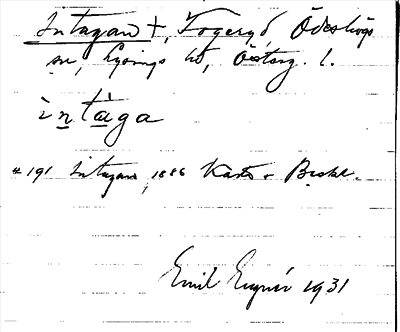 Intagan +, Fogeryd, Ödeshögs
sn, Lysings hd, Österg. l.
ìntàga
#191 Intagan, 1886 Karta o Beskr.
Emil Eugnér 1931